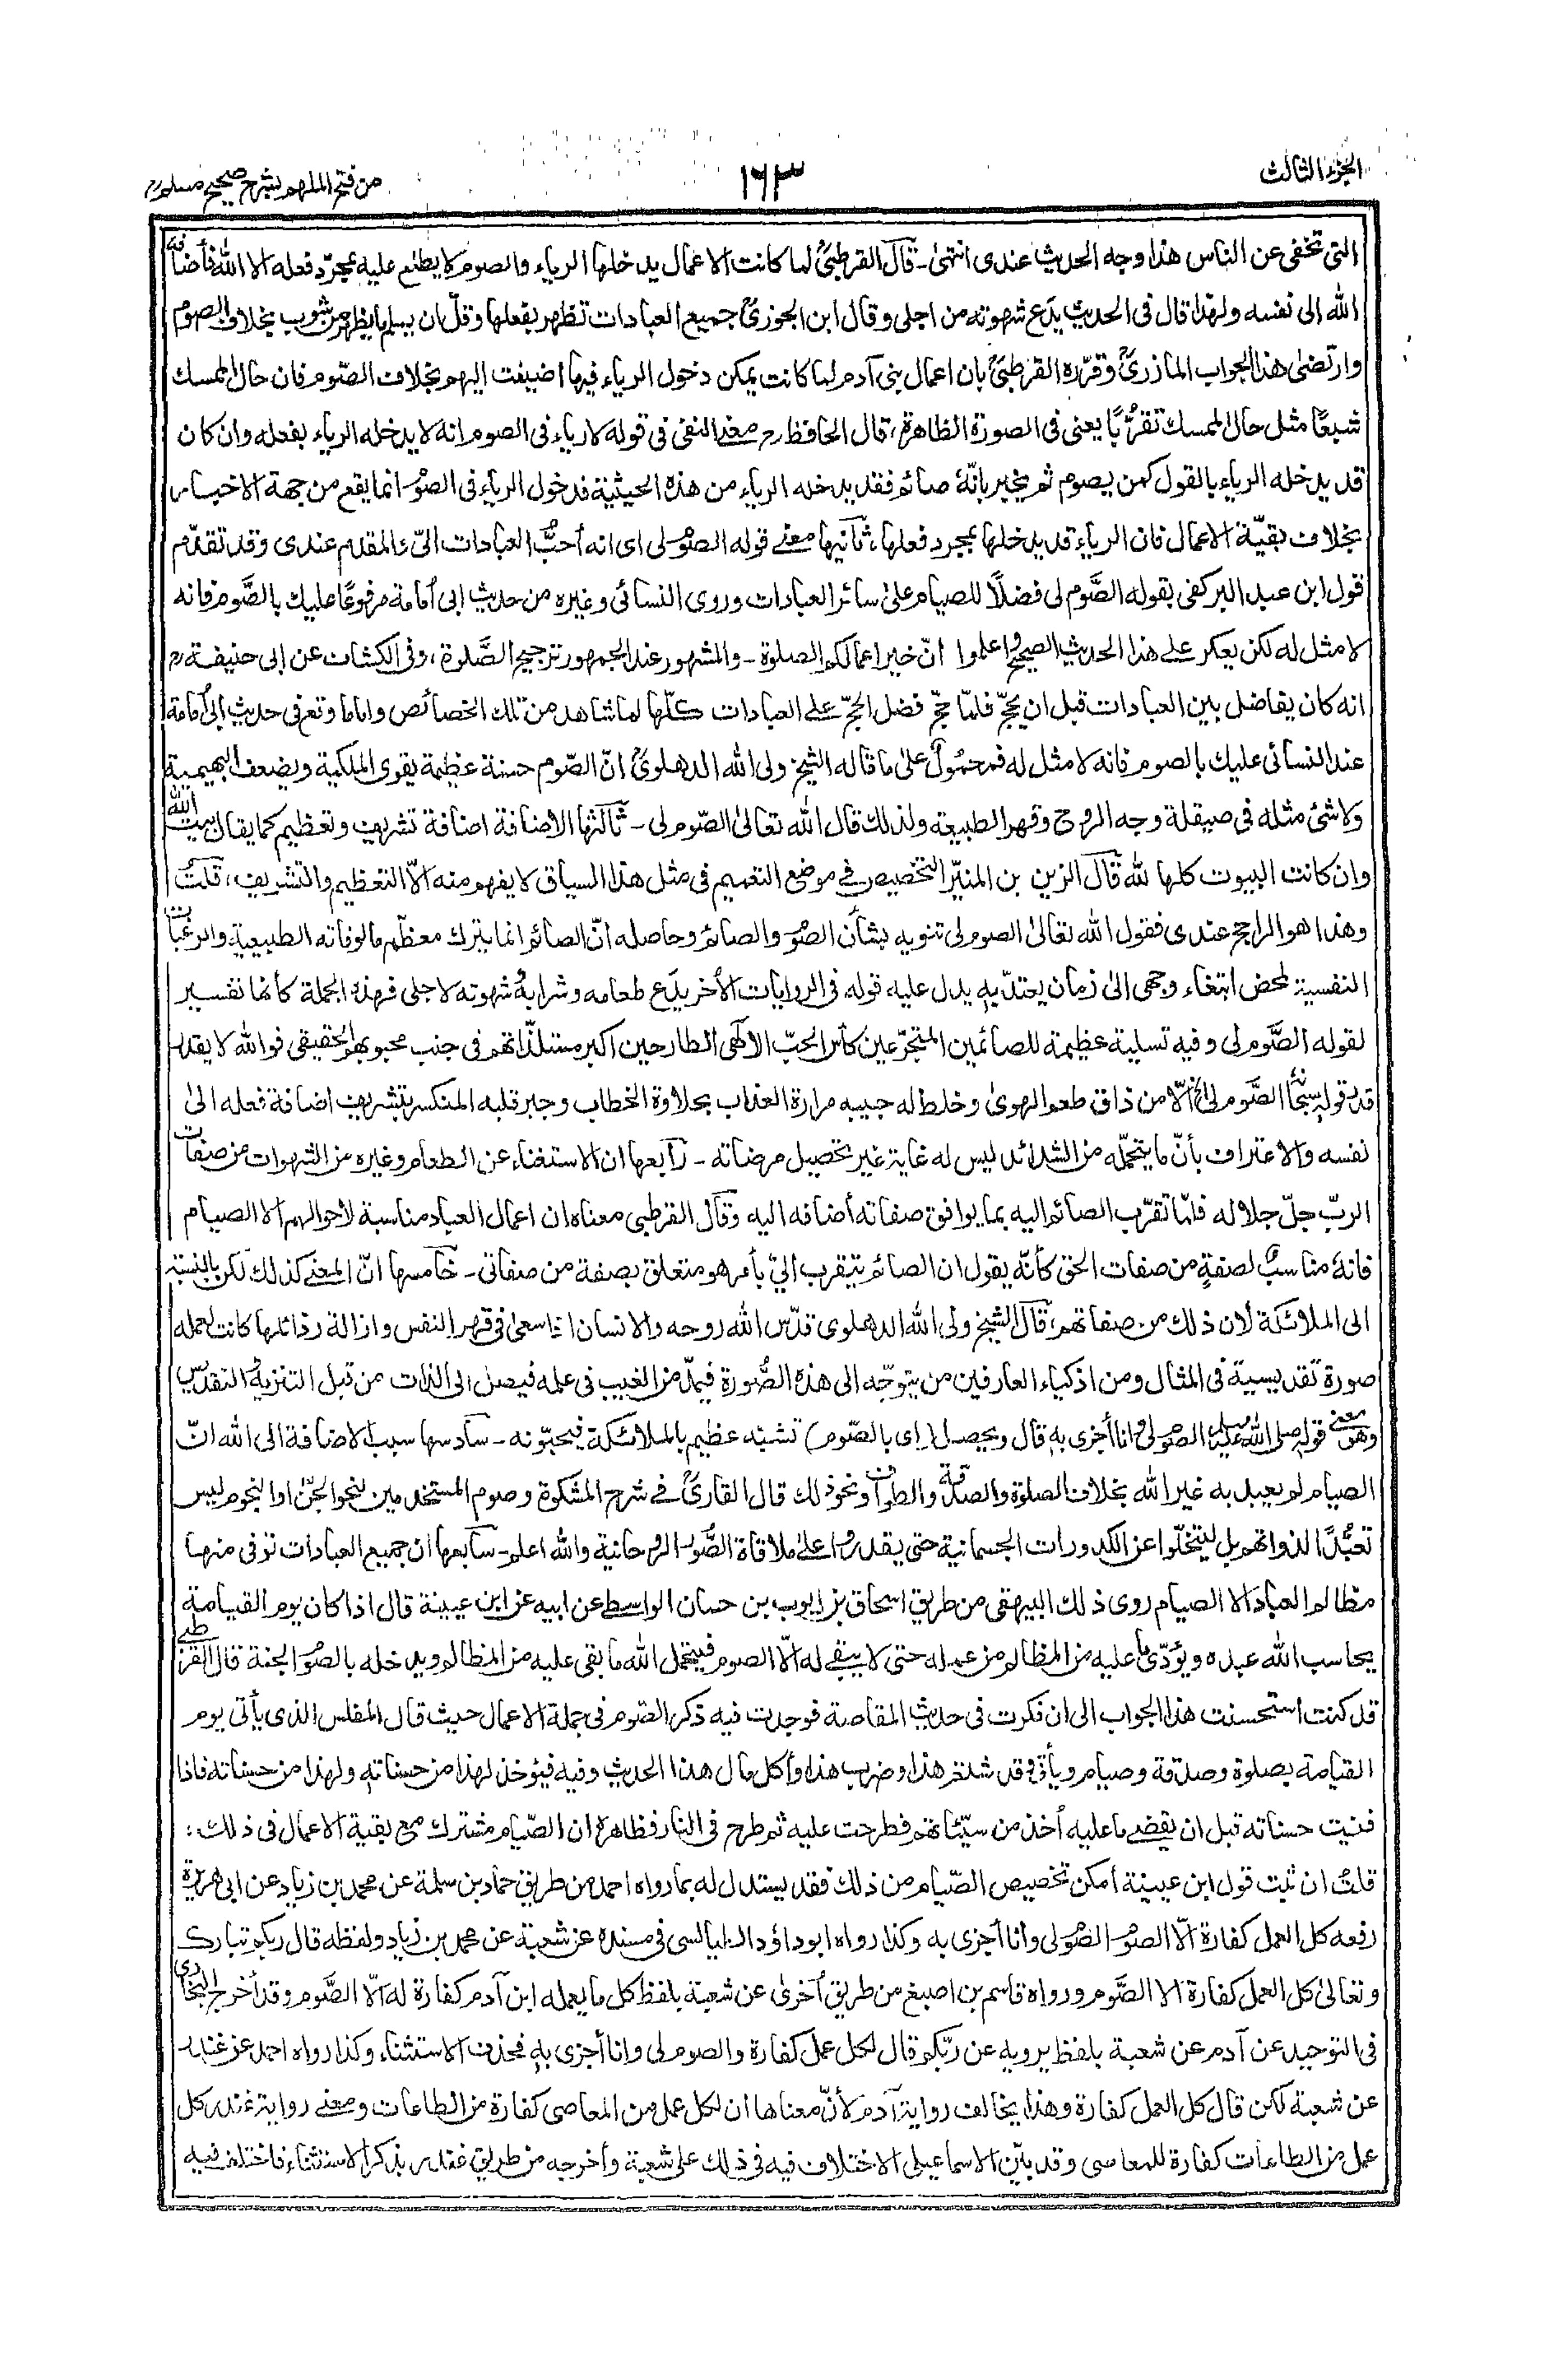 الجزء الثالث
١٦٣
من فتح الملهم بشرح صحيح مسلم
التى تخفى عن الناس هذا وجه الحديث عندى انتهىٰ - قال القرطبىؒ لما كانت الاعمال يدخلها الرياء والصوم لا يطلع عليه بمجرّد فعله الا الله فأضافه
الله الى نفسه ولهذا قال فى الحديث يدع شهوته من اجلى وقال ابن الجوزىؒ جميع العبادات تظهر بفعلها وقلّ ان يسلم ما يظهر من شوب بخلاف الصوم
وارتضىٰ هذا الجواب المازرىؒ وقرّره القرطبىؒ بان اعمال بنى آدم لما كانت يمكن دخول الرياء فيها اضيفت إليهم بخلاف الصّوم فان حال الممسك
شبعًا مثل حال الممسك تقرُّبًا يعنى فى الصورة الظاهرة، قال الحافظ رح معنى النفى فى قوله لا رياء فى الصوم انه لا يدخله الرياء بفعله وان كان
قد يدخله الرياء بالقول كمن يصوم ثم يخبر بانّهٗ صائم فقد يدخله الرياء من هذه الحيثية فدخول الرياء فى الصوم انما يقع من جهة الاخبار
بخلاف بقيّة الاعمال فان الرياء قد يدخلها بمجرد فعلها، ثانيها معنى قوله الصوم لى اى انه أحبُّ العبادات الىّ والمقدم عندى وقد تقدّم
قول ابن عبد البر كفى بقوله الصَّوم لى فضلًا للصيام علىٰ سائر العبادات وروى النسائى وغيره من حديث ابى أمامة مرفوعًا عليك بالصَّوم فانه
لا مثل له لكن يعكر على هذا الحديث الصحيح واعلموا انّ خير اعمالكم الصلوة - والمشهور عند الجمهور ترجيح الصَّلوة، وفى الكشاف عن ابى حنيفة رح
انه كان يفاضل بين العبادات قبل ان يحجّ فلمّا حجّ فضل الحجّ على العبادات كلّها لما شاهد من تلك الخصائص واما ما وقع فى حديث أبى أمامة
عند النسائى عليك بالصوم فانه لا مثل له فمحمُولٌ علىٰ ما قاله الشيخ ولى الله الدهلوىؒ انّ الصّوم حسنة عظيمة يقوى الملكية ويضعف البهيمية
ولا شئ مثله فى صيقلة وجه الروح وقهر الطبيعة ولذلك قال الله تعالىٰ الصّوم لى - ثالثها الاضافة اضافة تشريف وتعظيم كما يقال بيت الله
وان كانت البيوت كلها لله قال الزين بن المنيّر التخصيص فى موضع التعميم فى مثل هذا السياق لا يفهم منه الاّ التعظيم والتشريف، قلتُ
وهذا هو الراجح عندى فقول الله تعالىٰ الصوم لى تنويه بشأن الصوم والصائم وحاصله انّ الصائم انما يترك معظم مالوفاته الطبيعية والرغبات
النفسية لمحض ابتغاء وجهى الىٰ زمان يعتدّ به يدل عليه قوله فى الروايات الأخر يدَع طعامه وشرابهٗ شهوته لاجلى فهذه الجملة كأنها تفسير
لقوله الصَّوم لى وفيه تسلية عظيمة للصائمين المتجرّعين كأس الحبّ الالٰهى الطارحين اكبر مستلذّاتهم فى جنب محبوبهم الحقيقى فوالله لا يقدر
قدر قوله سبحانه الصَّوم لى الخ الّا من ذاق طعم الهوىٰ وخلط له حبيبه مرارة العذاب بحلاوة الخطاب وجبر قلبه المنكسر بتشريف اضافة فعله الىٰ
نفسه والاعتراف بأنّ ما يتحمّله من الشدائد ليس له غاية غير تحصيل مرضاته - رابعها ان الاستغناء عن الطعام وغيره من الشهوات من صفات
الربّ جلّ جلاله فلمّا تقرّب الصائم اليه بما يوافق صفاته أضافه اليه وقال القرطبى معناه ان اعمال العباد مناسبة لأحوالهم الا الصيام
فانهٗ مناسبٌ لصفةٍ من صفات الحق كأنّه يقول ان الصائم يتقرب الىّ بأمر هو متعلق بصفة من صفاتى - خامسها انّ المعنى كذلك لكن بالنسبة
الى الملائكة لان ذلك من صفاتهم، قال الشيخ ولى الله الدهلوى قدّس الله روحه والانسان اذا سعىٰ فى قهر النفس وازالة رذائلها كانت لعمله
صورة تقديسية فى المثال ومن اذكياء العارفين من يتوجّه الى هذه الصُّورة فيمدّ من الغيب فى علمه فيصل الى الذات من قبل التنزيه والتقديس
وهو معنى قوله صلى الله عليه وسلم الصوم لى وانا أجزى به قال ويحصل (اى بالصّوم) تشبّه عظيم بالملائكة فيحبّونه - سادسها سبب الاضافة الى الله انّ
الصيام لم يعبد به غير الله بخلاف الصلوة والصدقة والطواف ونحو ذلك قال القارىؒ فى شرح المشكوة وصوم المستخدمين لنحو الجنّ او النجوم ليس
تعبُّدًا لذواتهم بل ليتخلّوا عن الكدورات الجسمانية حتى يقدروا على ملاقاة الصُّور الروحانية والله اعلم - سابعها ان جميع العبادات توفى منها
مظالم العباد الا الصيام روى ذلك البيهقى من طريق اسحاق بن ايوب بن حسان الواسطى عن ابيه عن ابن عيينة قال اذا كان يوم القيامة
يحاسب الله عبده ويؤدّى ما عليه من المظالم من عمله حتى لا يبقى له الّا الصوم فيتحمل الله ما بقى عليه من المظالم ويدخله بالصوم الجنة قال القرطبى
قد كنت استحسنت هذا الجواب الى ان فكرت فى حديث المقاصة فوجدت فيه ذكر الصّوم فى جملة الاعمال حيث قال المفلس الذى يأتى يوم
القيامة بصلوة وصدقة وصيام ويأتى وقد شتم هذا وضرب هذا وأكل مال هذا الحديث وفيه فيؤخذ لهذا من حسناته ولهذا من حسناته فاذا
فنيت حسناته قبل ان يقضى ما عليه أخذ من سيّئاتهم فطرحت عليه ثم طرح فى النار فظاهره ان الصّيام مشترك مع بقية الاعمال فى ذلك؛
قلتُ ان ثبت قول ابن عيينة أمكن تخصيص الصّيام من ذلك فقد يستدل له بما رواه احمد من طريق حماد بن سلمة عن محمد بن زياد عن ابى هريرة
رفعه كل العمل كفارة الّا الصوم الصوم لى وانا أجزى به وكذا رواه ابو داؤد الطيالسى فى مسنده عن شعبة عن محمد بن زياد ولفظه قال ربكم تبارك
وتعالىٰ كل العمل كفارة الا الصَّوم ورواه قاسم بن اصبغ من طريق أخرىٰ عن شعبة بلفظ كل ما يعمله ابن آدم كفارة له الّا الصَّوم وقد أخرج البخارى
فى التوحيد عن آدم عن شعبة بلفظ يرويه عن ربّكم قال لكل عمل كفارة والصوم لى وانا أجزى به فحذف الاستثناء وكذا رواه احمد عن غندر
عن شعبة لكن قال كل العمل كفارة وهذا يخالف رواية آدم لأنّ معناها ان لكل عمل من المعاصى كفارة من الطاعات ومعنى رواية غندر كل
عمل من الطاعات كفارة للمعاصى وقد بيّن الاسماعيلى الاختلاف فيه فى ذلك على شعبة وأخرجه من طريق غندر بذكر الاستثناء فاختلف فيه